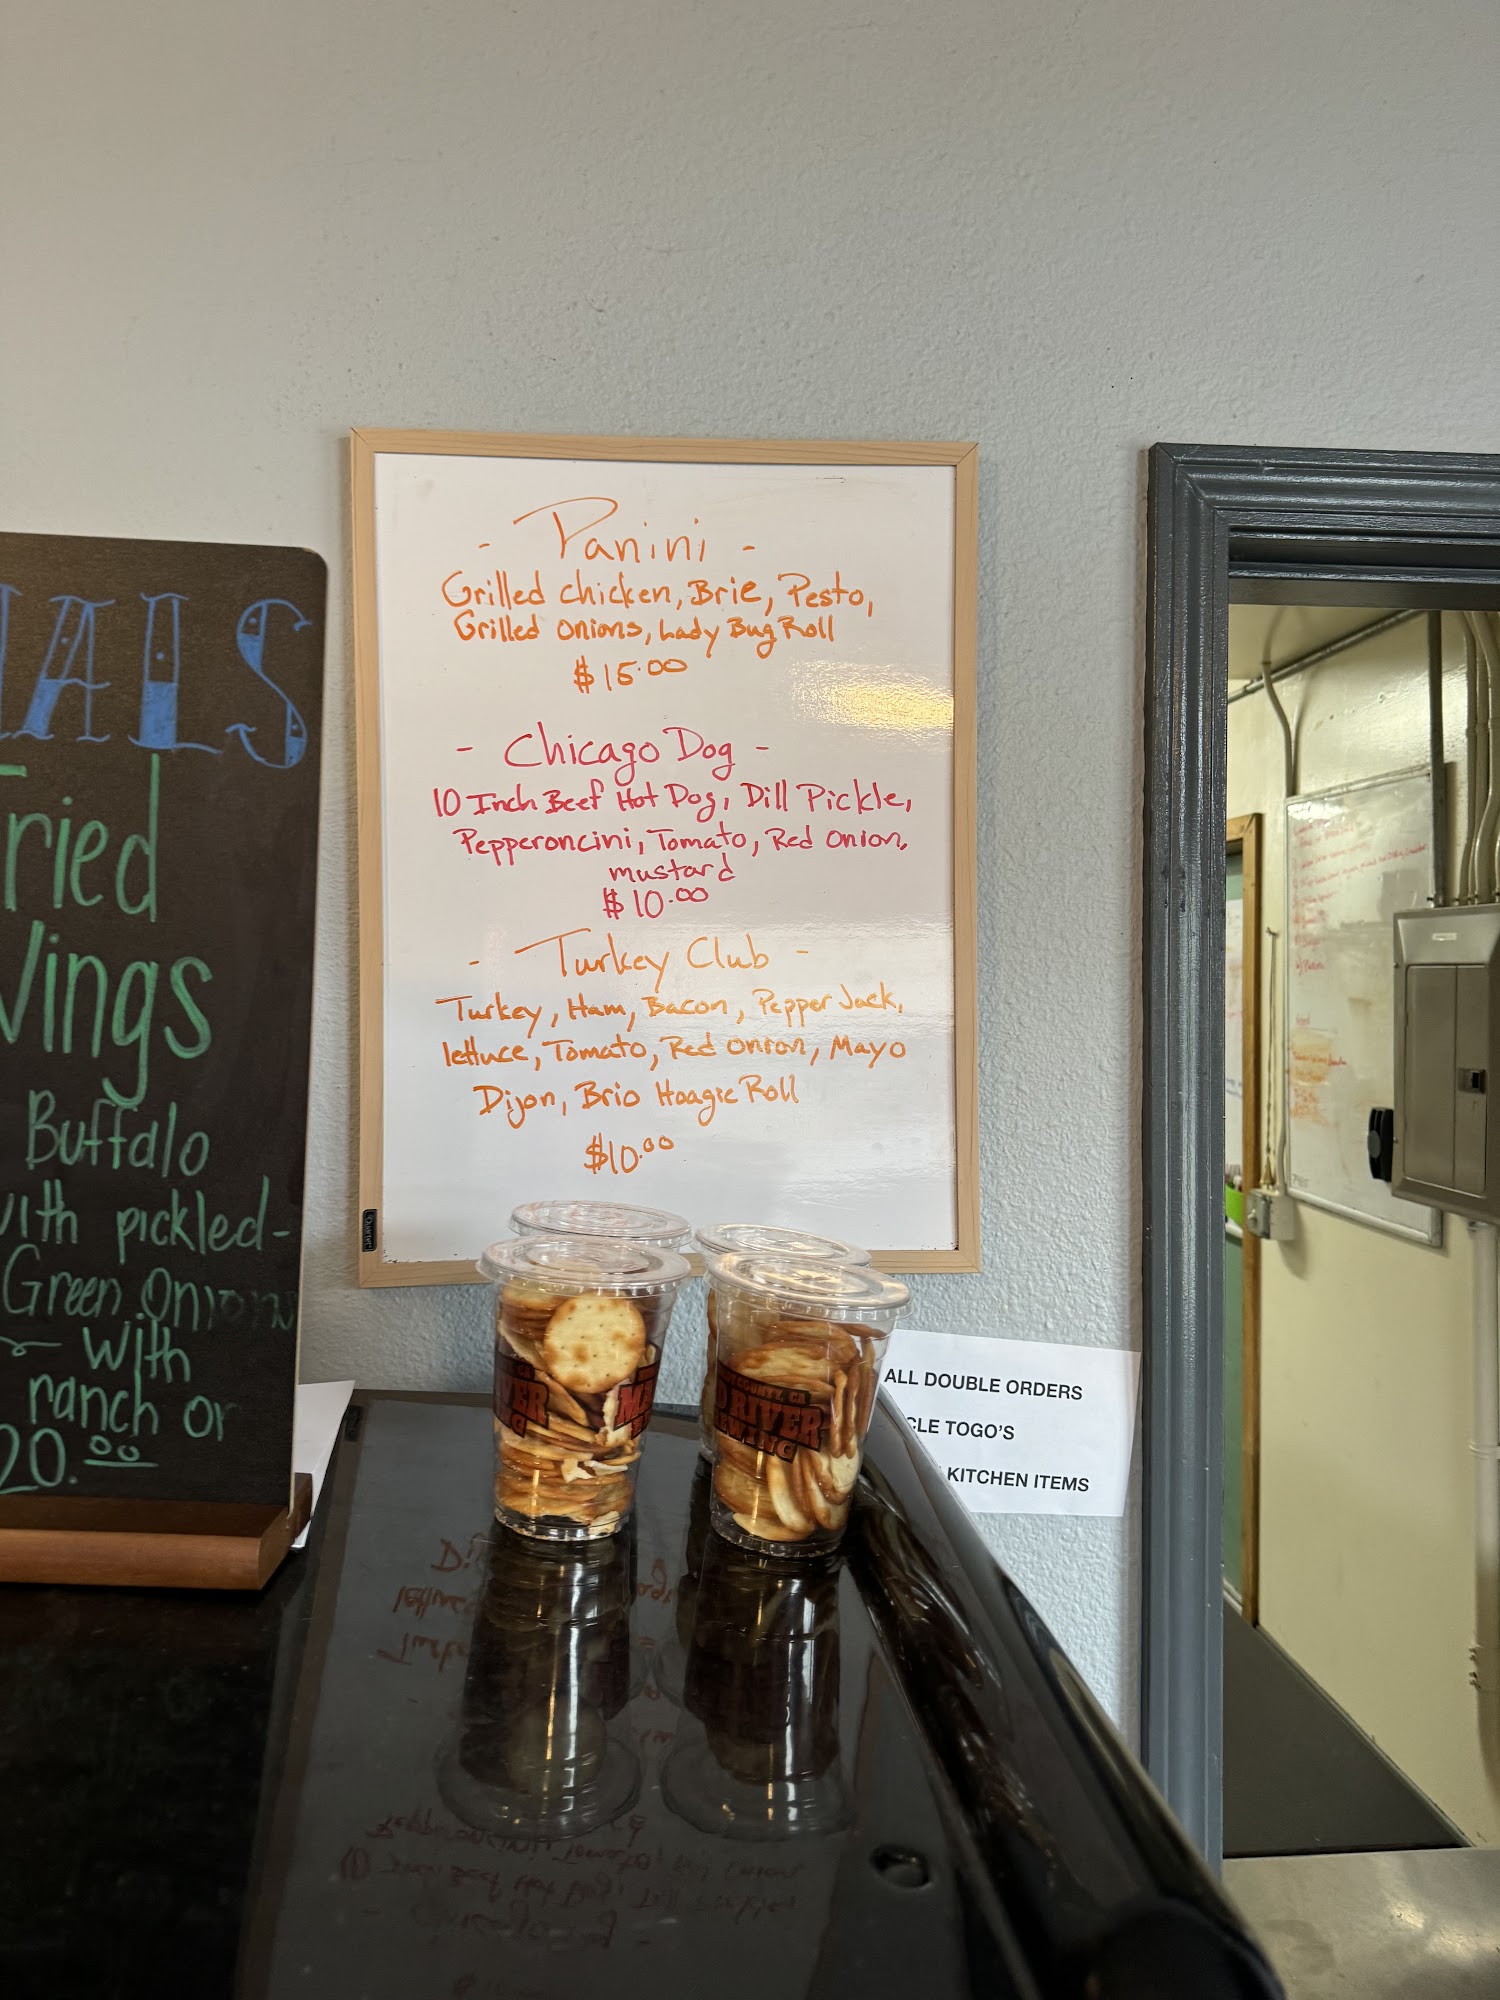 IALS
ried
Wings
Buffalo
with pickled-
Green Onions
with
ranch or
20.00
- Panini -
Grilled chicken, Brie, Pesto,
Grilled onions, Lady Bug Roll
$15.00
- Chicago Dog -
10 Inch Beef Hot Dog, Dill Pickle,
Pepperoncini, Tomato, Red Onion,
mustard
$10.00
- Turkey Club -
Turkey, Ham, Bacon, Pepper Jack,
lettuce, Tomato, Red onion, Mayo
Dijon, Brio Hoagie Roll
$10.00
Quartet
D RIVER
ALL DOUBLE ORDERS
CLE TOGO'S
KITCHEN ITEMS